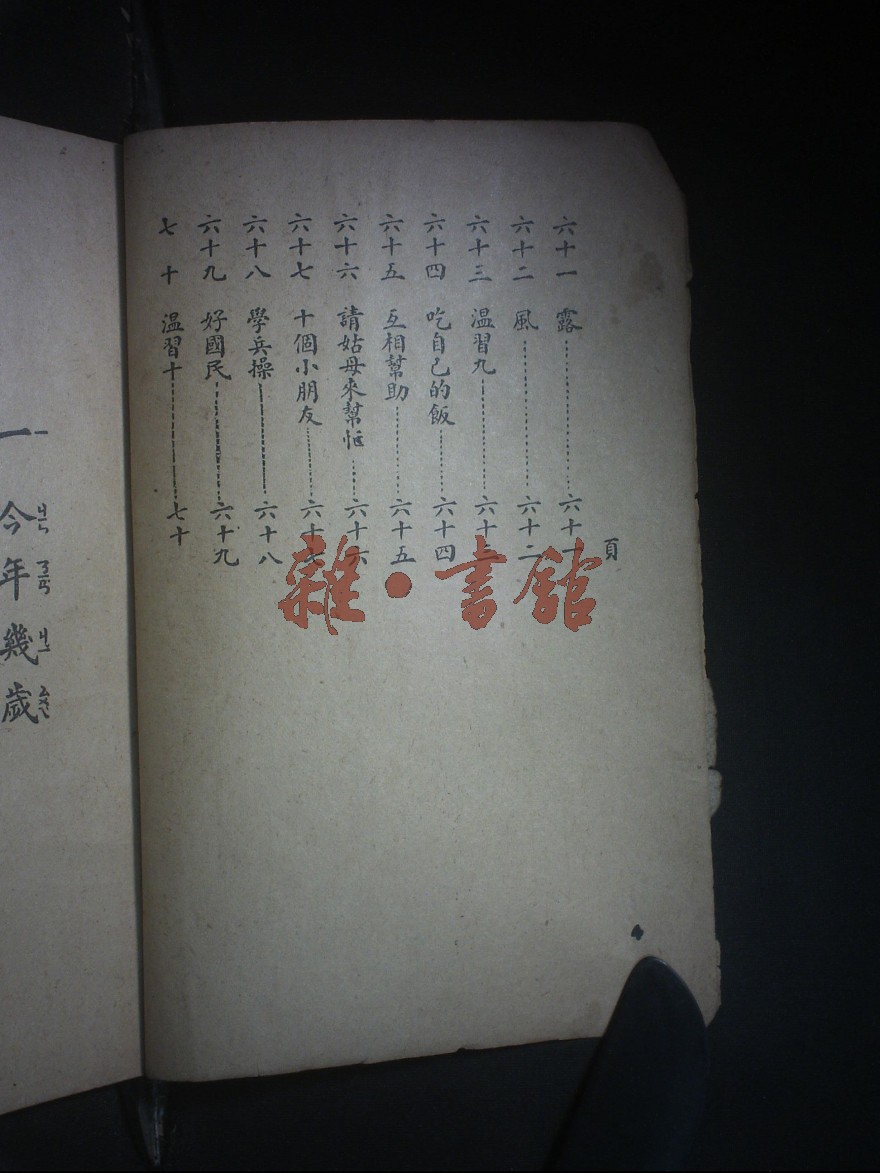 頁
六十一 露 六十一
六十二 風 六十二
六十三 温習九 六十三
六十四 吃自己的飯 六十四
六十五 互相幫助 六十五
六十六 請姑母來幫忙 六十六
六十七 十個小朋友 六十七
六十八 學兵操 六十八
六十九 好國民 六十九
七十 温習十 七十
一 今年幾歲
一 ㄐㄧㄣ ㄋㄧㄢ ㄐㄧ ㄙㄨㄟ
雜·書館